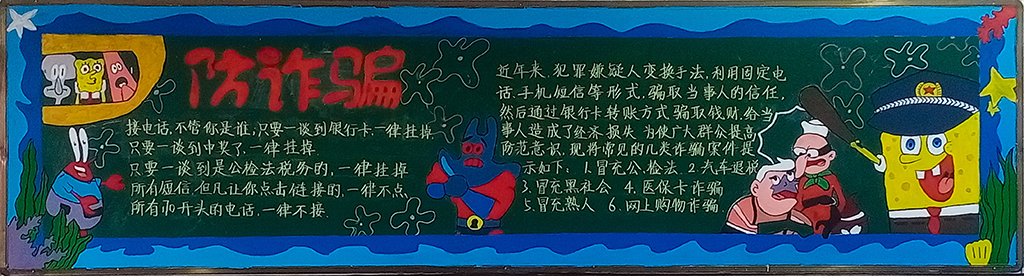 防诈骗
接电话,不管你是谁,只要一谈到银行卡,一律挂掉
只要一谈到中奖了,一律挂掉
只要一谈到是公检法税务的,一律挂掉
所有短信,但凡让你点击链接的,一律不点
所有170开头的电话,一律不接.
近年来,犯罪嫌疑人变换手法,利用固定电
话,手机,短信等形式,骗取当事人的信任,
然后通过银行卡转账方式骗取钱财,给当
事人造成了经济损失,为使广大群众提高
防范意识,现将常见的几类诈骗案件提
示如下: 1.冒充公、检法. 2.汽车退税
3.冒充黑社会 4.医保卡诈骗
5.冒充熟人 6.网上购物诈骗